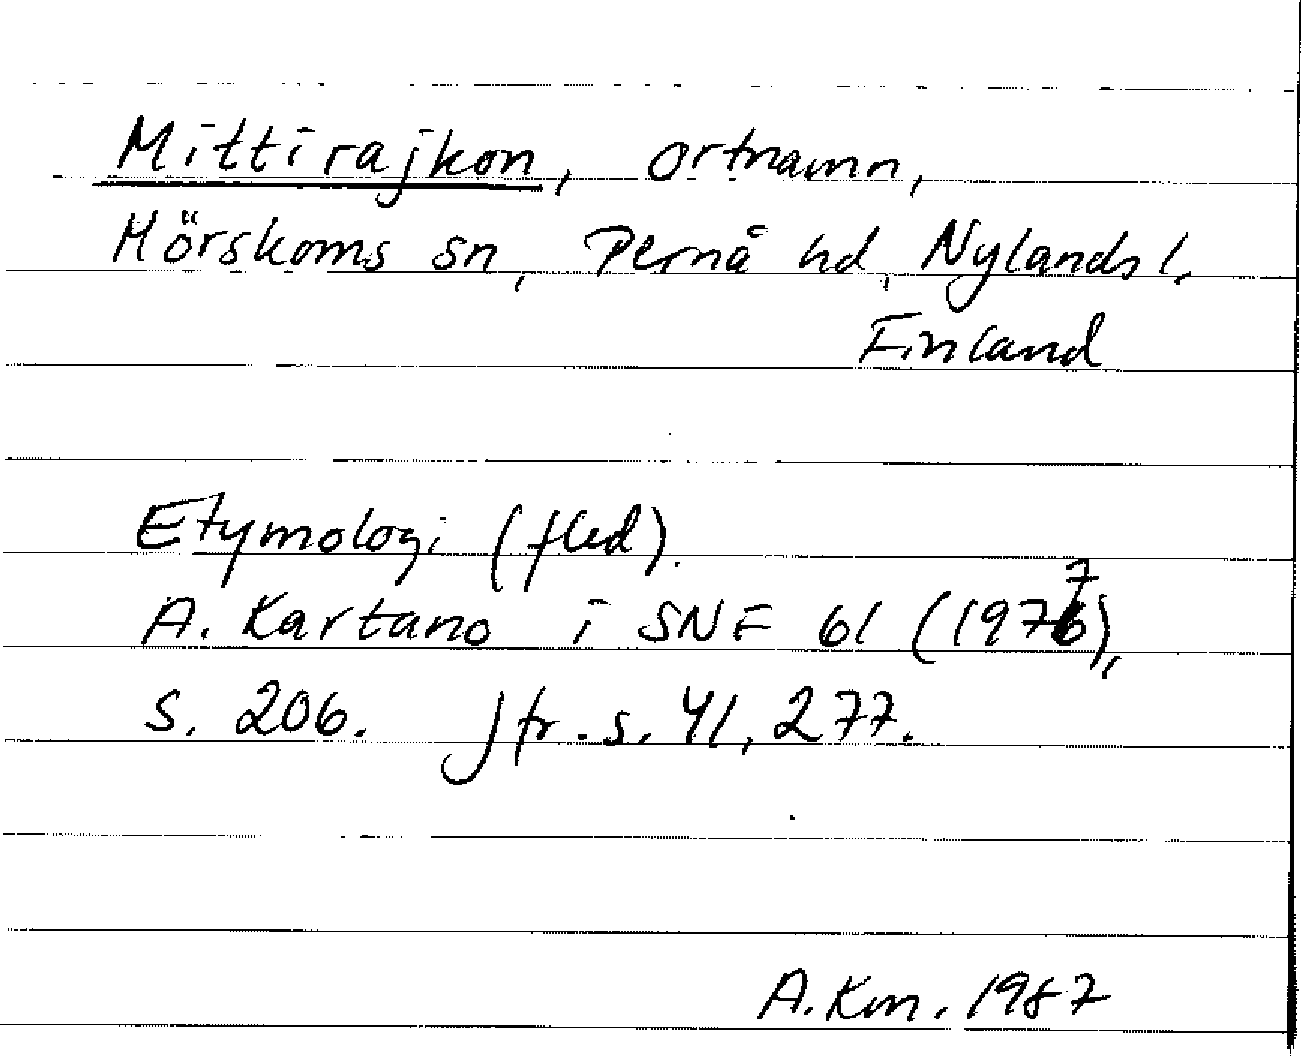 Mittirajkon, ortnamn,
Mörskoms sn, Pernå hd, Nylands l.
Finland
Etymologi (fled).
A. Kartano i SNF 61 (1977),
s. 206. Jfr. s. 41, 277.
A. Km. 1987